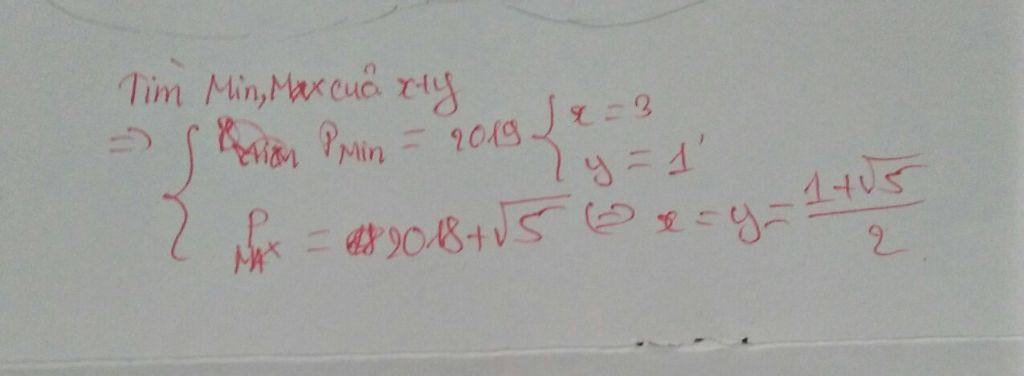 Tìm Min, Max cuả x+y
=> { P Min = 2019 { x = 3
y = 1
P MAX = 2018+√5 <=> x = y = (1+√5)/2